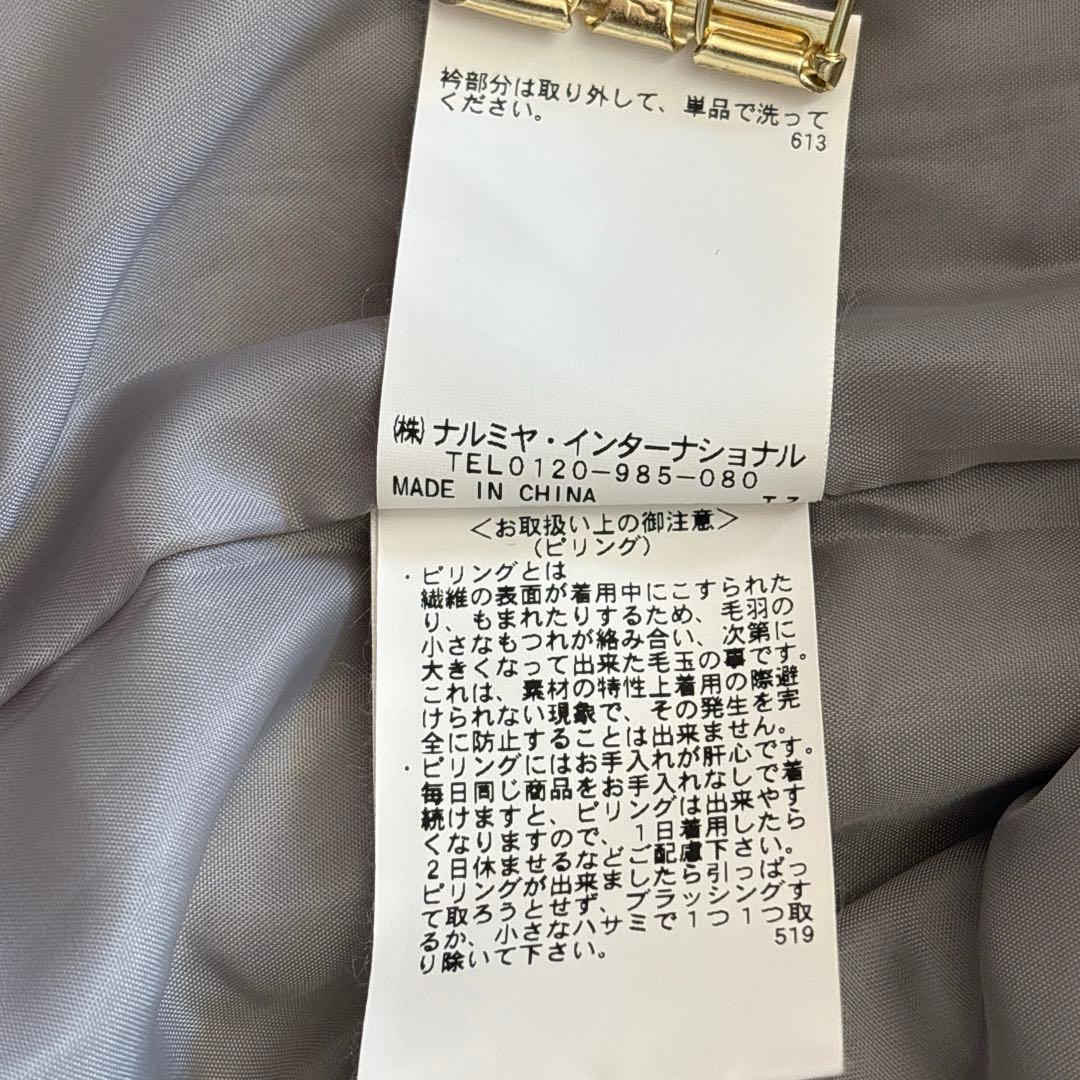 衿部分は取り外して、単品で洗って
ください。
613
㈱ナルミヤ・インターナショナル
TEL0120−985−080
MADE IN CHINA
＜お取扱い上の御注意＞
(ピリング)
・ピリングとは
繊維の表面が着用中にこすられた
り、もまれたりするため、毛羽の
小さなもつれが絡み合い、次第に
大きくなって出来た毛玉の事です。
これは、素材の特性上着用の際避
けられない現象で、その発生を完
全に防止することは出来ません。
・ピリングにはお手入れが肝心です。
毎日同じ商品をお手入れなしで着
続けますと、ピリングは出来やす
くなりますので、1日着用したら
2日休ませるなどご配慮下さい。
ピリングが出来ましたら引っぱっ
て取ろうとせず、ブラッシングす
るか、小さなハサミで1つ1つ取
り除いて下さい。
519